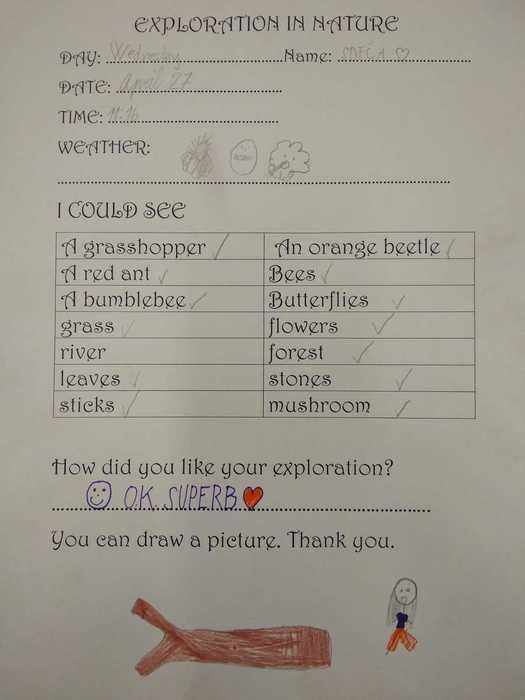 EXPLORATION IN NATURE
DAY: Wednesday Name: ♡
DATE: April 27
TIME: 11:16
WEATHER:
I COULD SEE
A grasshopper ✓ An orange beetle ✓
A red ant ✓ Bees ✓
A bumblebee ✓ Butterflies ✓
grass ✓ flowers ✓
river forest ✓
leaves ✓ stones ✓
sticks ✓ mushroom ✓
How did you like your exploration?
O.K. SUPERB
You can draw a picture. Thank you.